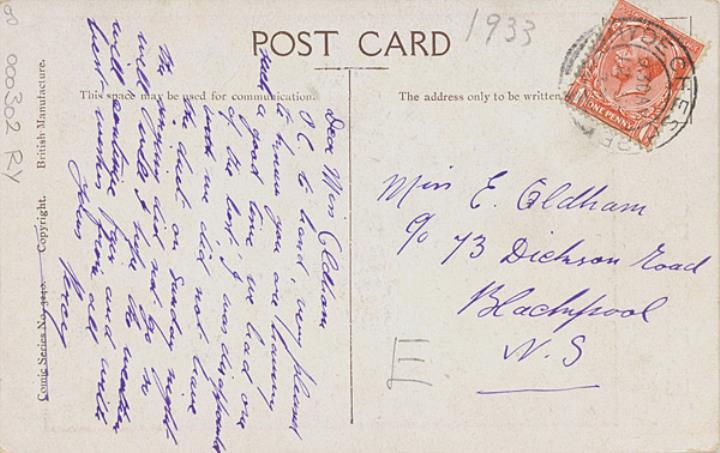 POST CARD
1933
This space may be used for communication.
The address only to be written
HYDE CHESHIRE
ONE PENNY
Dear Miss Oldham
P.C. to hand, very pleased
to know you are having
such a good time we had one
of the best, I was disappointed
with we did not have
the duet on Sunday night
the singing did not go so
well well I hope the weather
will continue fair and with
best wishes from all
yours Percy
Miss E. Oldham
c/o 73 Dickson Road
Blackpool
N.S
E
Comic Series No. 3240. Copyright. British Manufacture.
000302 RY